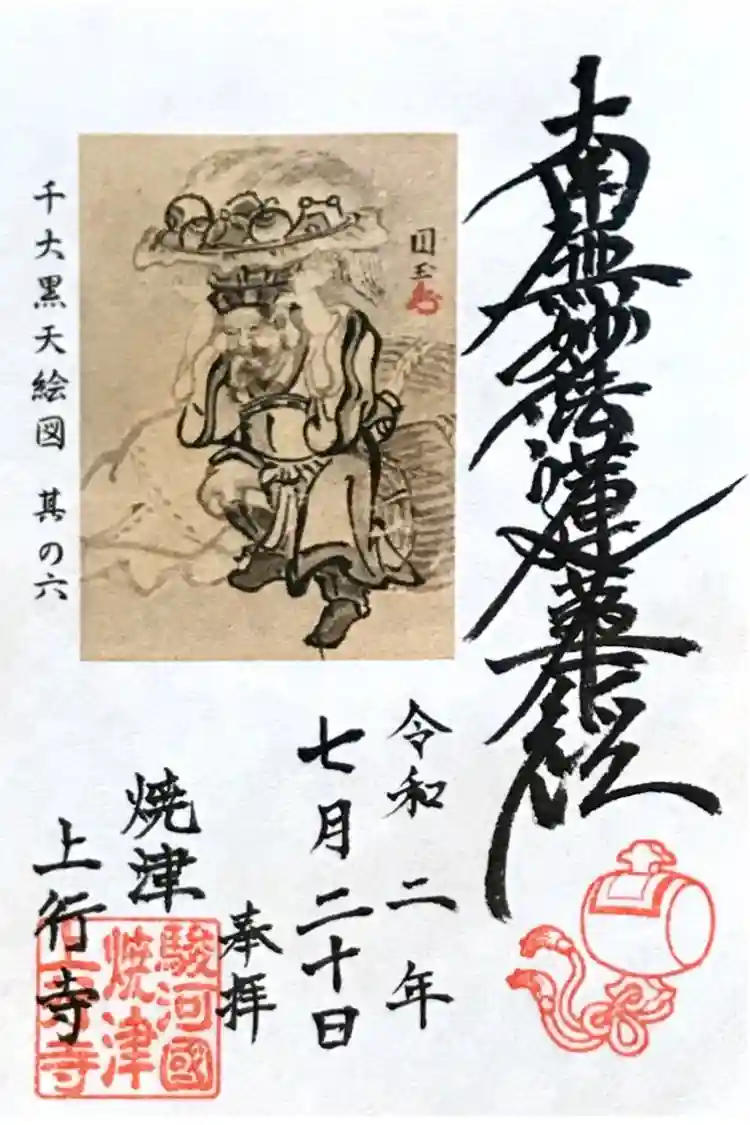 南無妙法蓮華経
圓玉
千大黒天絵図 其の六
令和二年
七月二十日
奉拝
焼津
上行寺
駿河國
焼津
上行寺